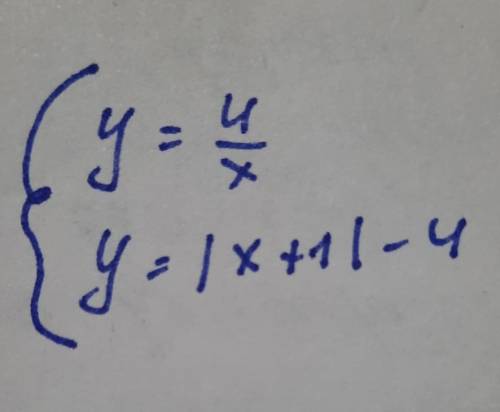 y = 4/x
y = |x+1| - 4